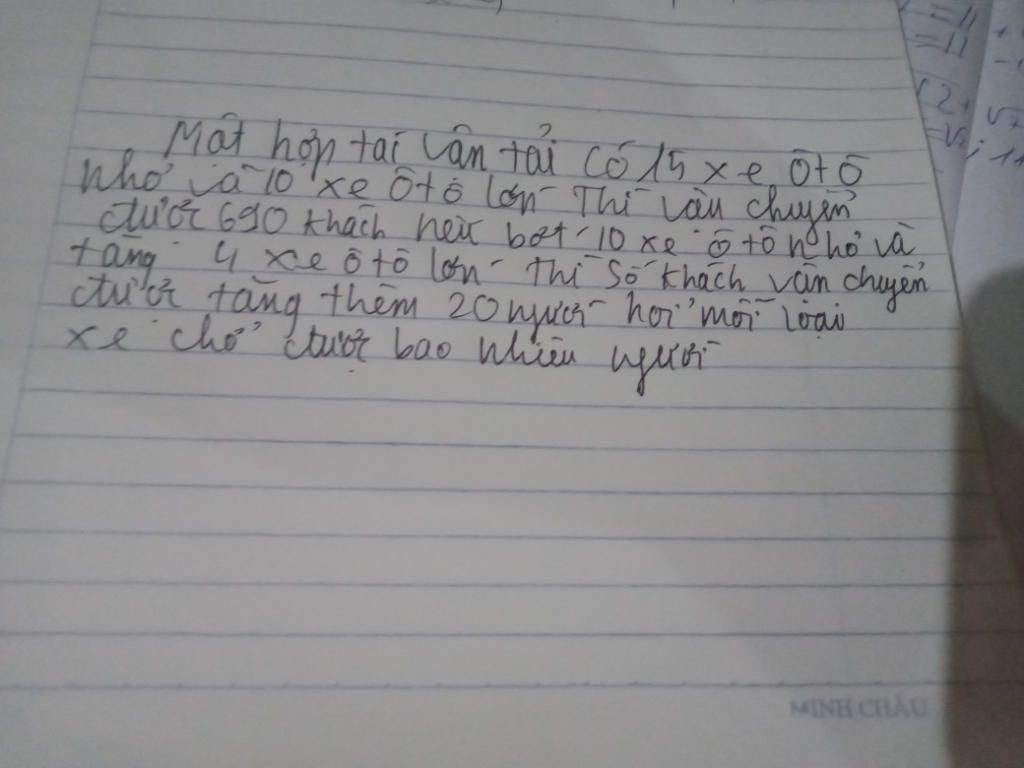 Một hợp tai vận tải có 15 xe ôtô
nhỏ và 10 xe ôtô lớn Thì vận chuyển
được 690 khách nếu bớt 10 xe ôtô nhỏ và
tăng 4 xe ôtô lớn Thì số khách vận chuyển
được tăng thêm 20 người hỏi mỗi loại
xe chở được bao nhiêu người
MINH CHÂU
=11
=11